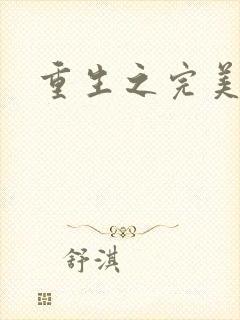 重生之完美
舒淇